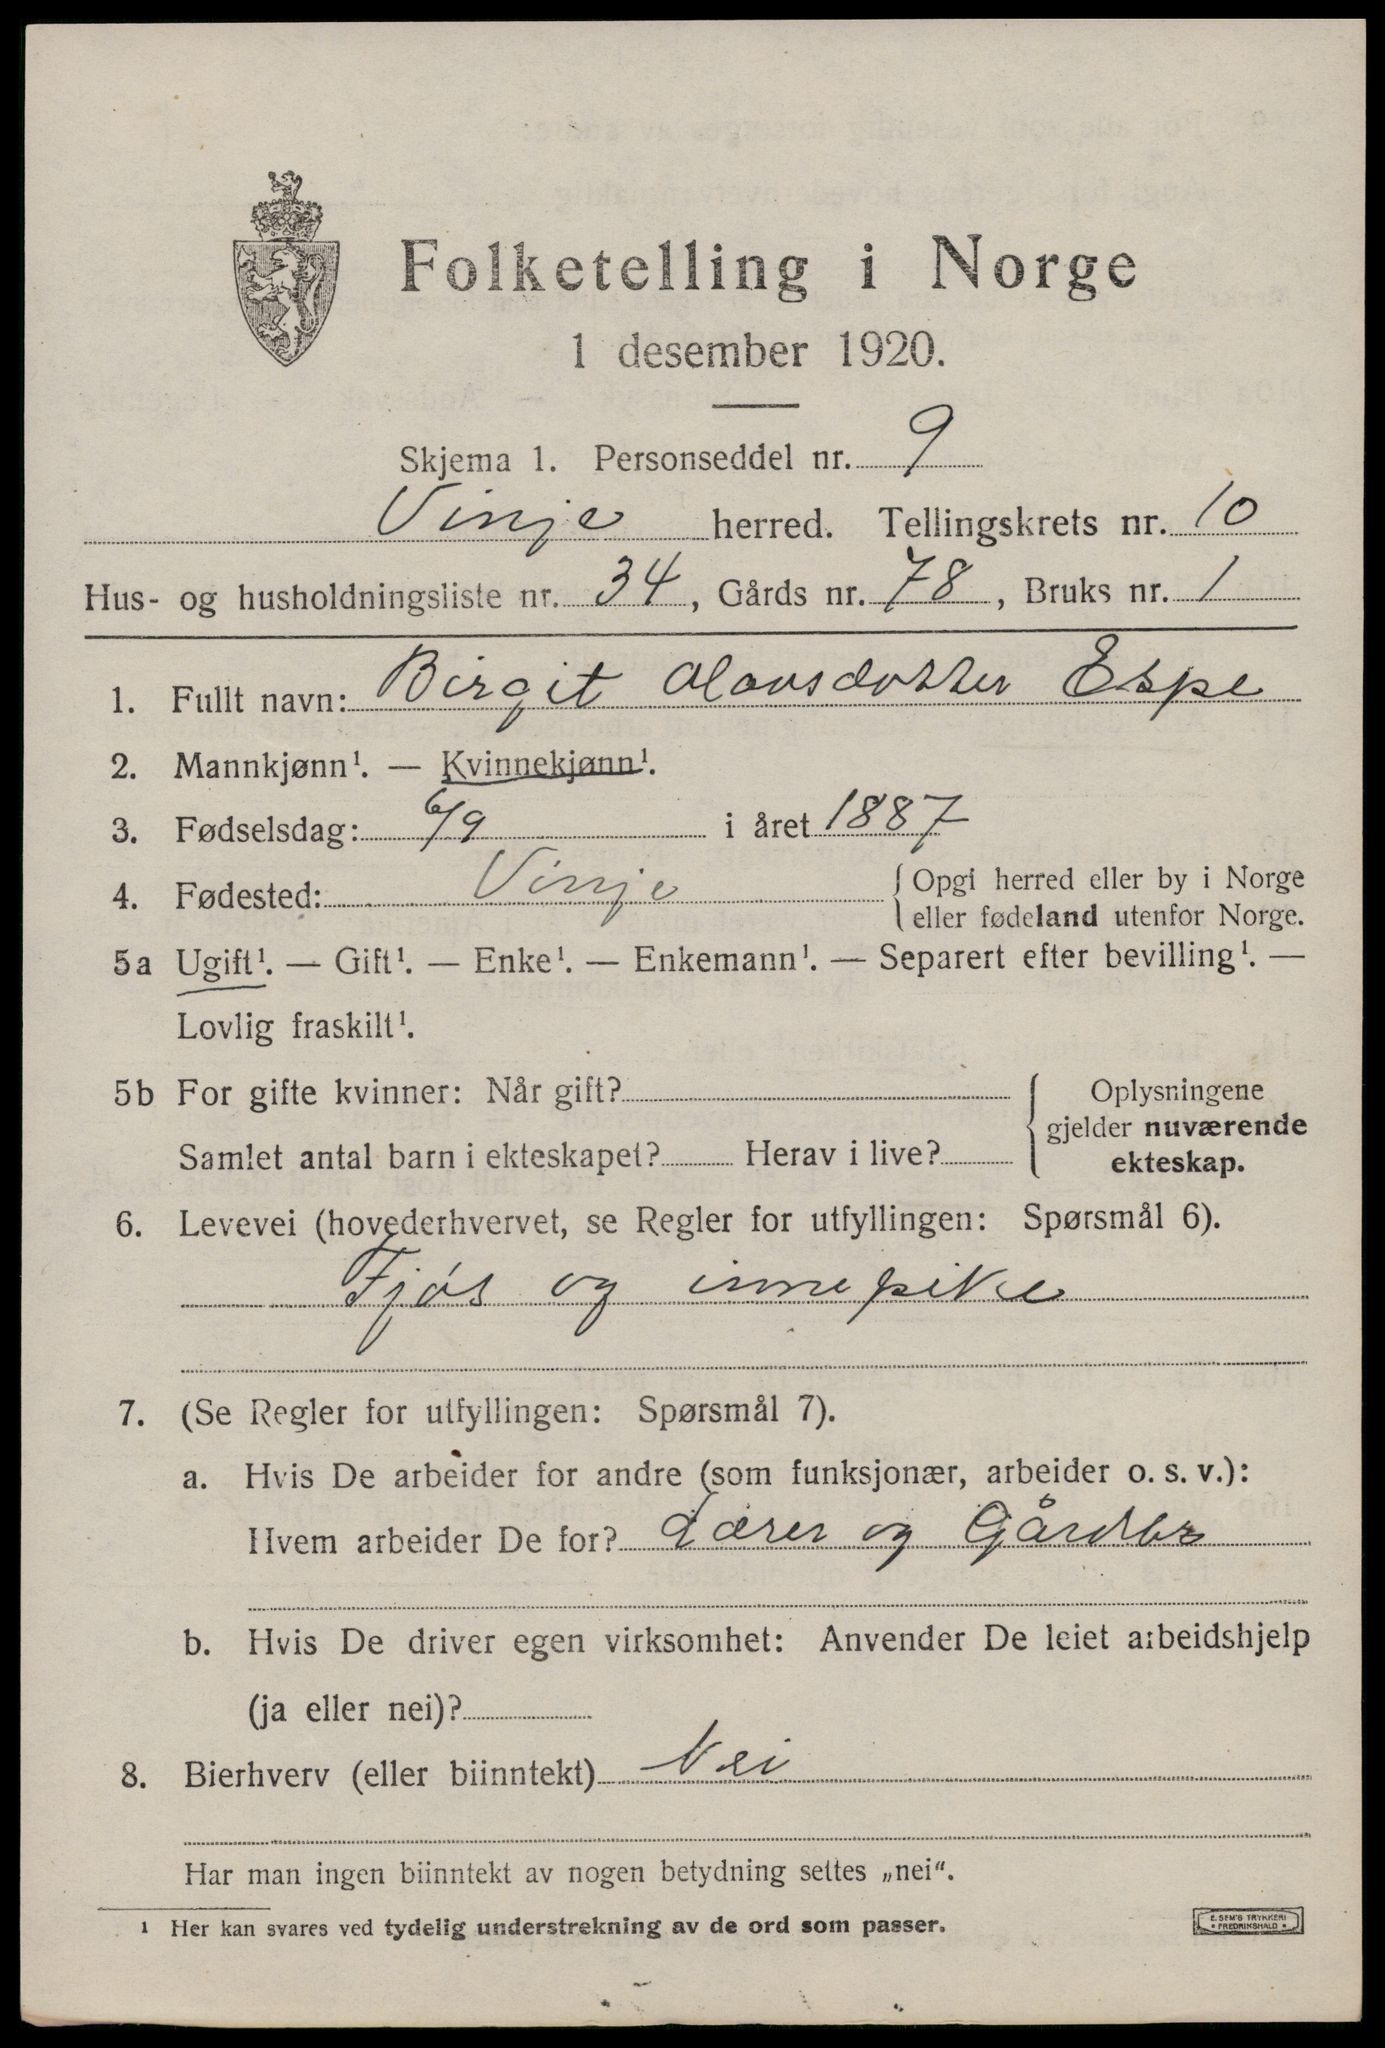 Folketelling i Norge
1 desember 1920.
Skjema 1. Personseddel nr. 9
Vinje herred. Tellingskrets nr. 10
Hus- og husholdningsliste nr. 34, Gårds nr. 78, Bruks nr. 1
1. Fullt navn: Birgit Olavsdotter Espe
2. Mannkjønn¹. — Kvinnekjønn¹.
3. Fødselsdag: 6/9 i året 1887
4. Fødested: Vinje { Opgi herred eller by i Norge
eller fødeland utenfor Norge.
5a Ugift¹. — Gift¹. — Enke¹. — Enkemann¹. — Separert efter bevilling¹. —
Lovlig fraskilt¹.
5b For gifte kvinner: Når gift? { Oplysningene
gjelder nuværende
Samlet antal barn i ekteskapet? Herav i live? ekteskap.
6. Levevei (hovederhvervet, se Regler for utfyllingen: Spørsmål 6).
Fjøs og innepike
7. (Se Regler for utfyllingen: Spørsmål 7).
a. Hvis De arbeider for andre (som funksjonær, arbeider o. s. v.):
Hvem arbeider De for? Lærer og Gårdbr
b. Hvis De driver egen virksomhet: Anvender De leiet arbeidshjelp
(ja eller nei)?
8. Bierhverv (eller biinntekt) Nei
Har man ingen biinntekt av nogen betydning settes „nei“.
¹ Her kan svares ved tydelig understrekning av de ord som passer.
E. SEM'S TRYKKERI
• FREDRIKSHALD •